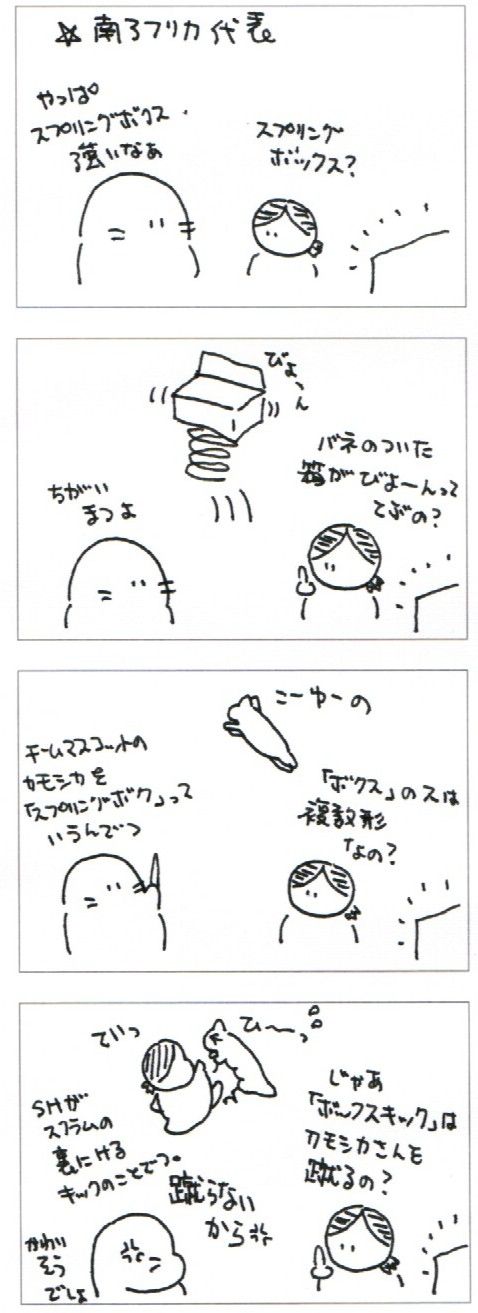 ☆南アフリカ代表
やっぱ
スプリングボクス
強いなぁ
スプリング
ボックス?
びよーん
バネのついた
箱がびよーんって
とぶの?
ちがい
まつよ
こーゆーの
チームマスコットの
カモシカを
「スプリングボク」って
いうんでつ
「ボクス」のスは
複数形
なの?
ていっ
ひ〜っ
じゃあ
「ボックスキック」は
カモシカさんを
蹴るの?
SHが
スクラムの
裏にける
キックのことでつ。
蹴らない
から
かわい
そう
でしょ